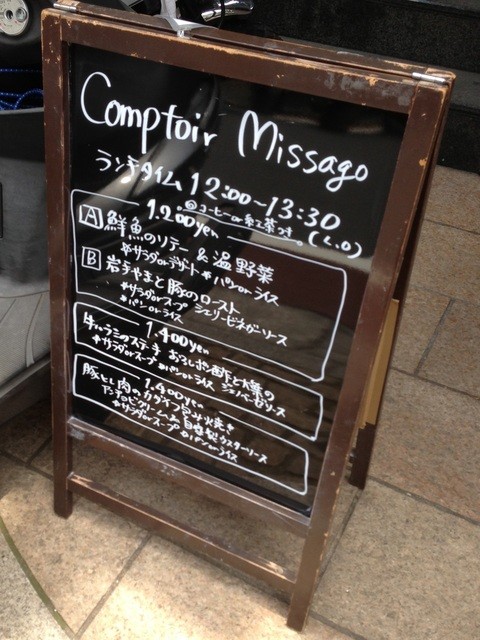 Comptoir Missago
ランチタイム 12:00~13:30
(L.O)
コーヒーor紅茶つき
1.200yen
A 鮮魚のソテー & 温野菜
*サラダorデザート *パンorライス
B 岩手やまと豚のロースト
シェリービネガーソース
*サラダorスープ
*パンorライス
1.400yen
牛ハラミのステーキ おろしポン酢と大葉の
ソース
*サラダorスープ *パンorライス
1.400yen
豚ヒレ肉の
アンチョビクリーム 自家製 ソース
*サラダorスープ *パンorライス